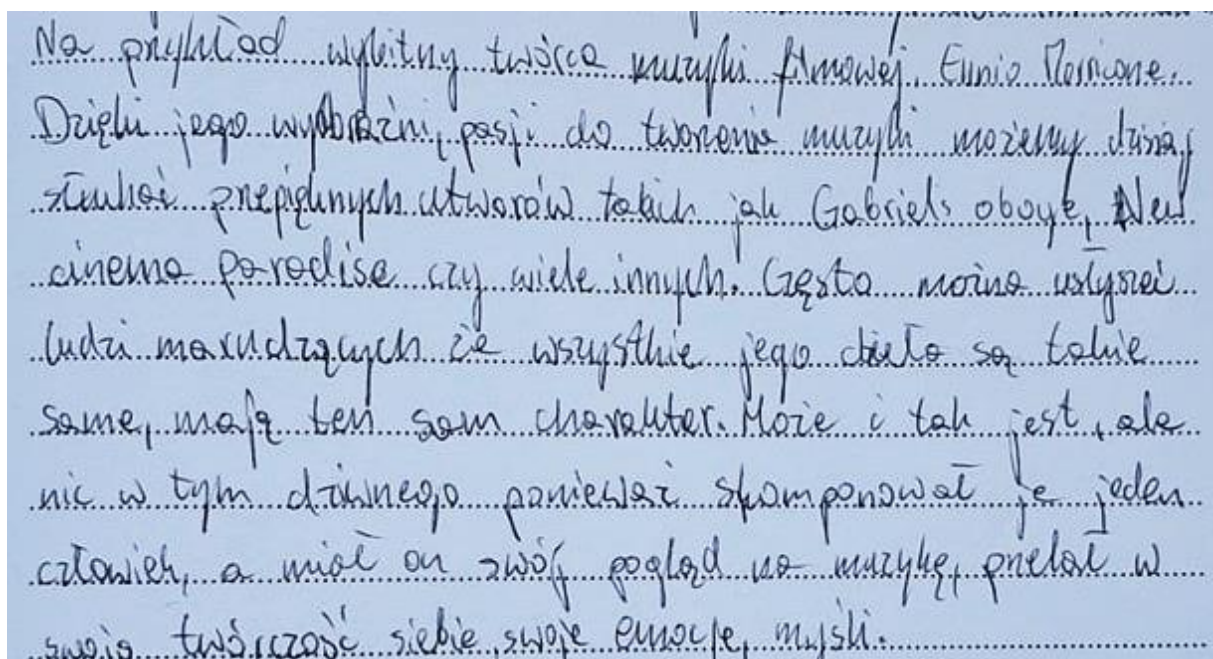 Na przykład wybitny twórca muzyki filmowej. Ennio Morricone.
Dzięki jego wyobraźni, pasji do tworzenia muzyki możemy dzisiaj
słuchać przepięknych utworów takich jak Gabriels oboye, New
cinema paradise czy wiele innych. Często można usłyszeć
ludzi marudzących że wszystkie jego dzieła są takie
same, mają ten sam charakter. Może i tak jest, ale
nic w tym dziwnego ponieważ skomponował je jeden
człowiek, a miał on swój pogląd na muzykę, przelał w
swoją twórczość siebie, swoje emocje, myśli.